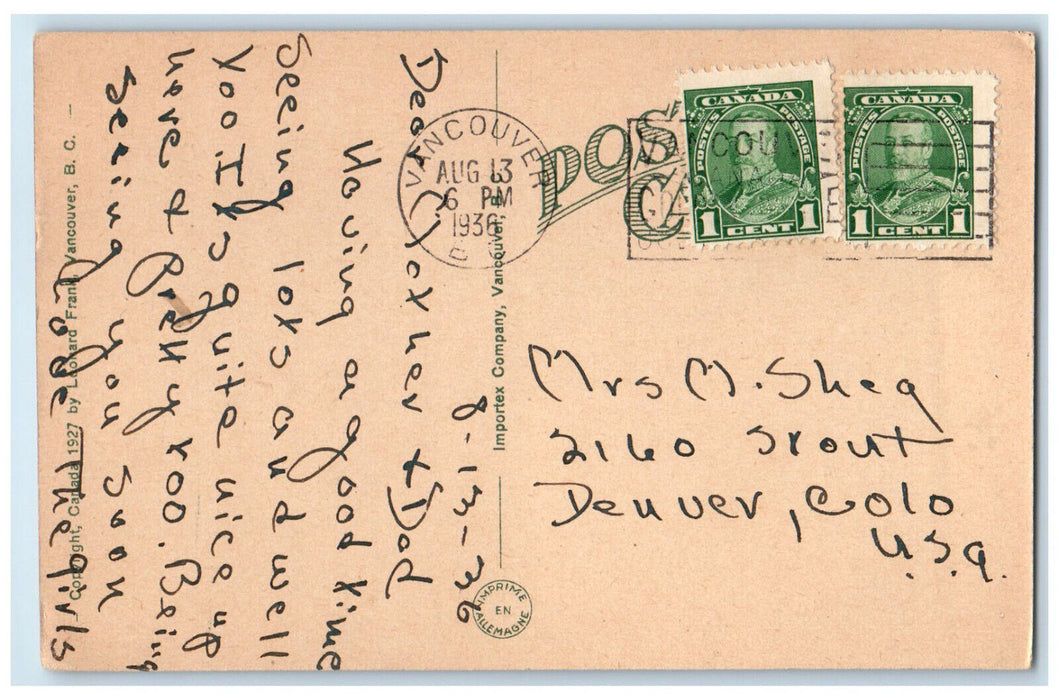 8-13-36
Dear Mother + Dad
Having a good time
Seeing lots and well
too. It's quite nice up
here & pretty too. Being
Seeing you soon
Love the girls
Mrs M. Shea
2160 Stout
Denver, Colo
U.S.A.
VANCOUVER
AUG 13
6 PM
1936
POST
VANCOUV
CANADA
POSTES POSTAGE
1 CENT 1
CANADA
POSTES POSTAGE
1 CENT 1
Importex Company, Vancouver,
IMPRIME
EN
ALLEMAGNE
Copyright, Canada 1927 by Leonard Frank, Vancouver, B. C.